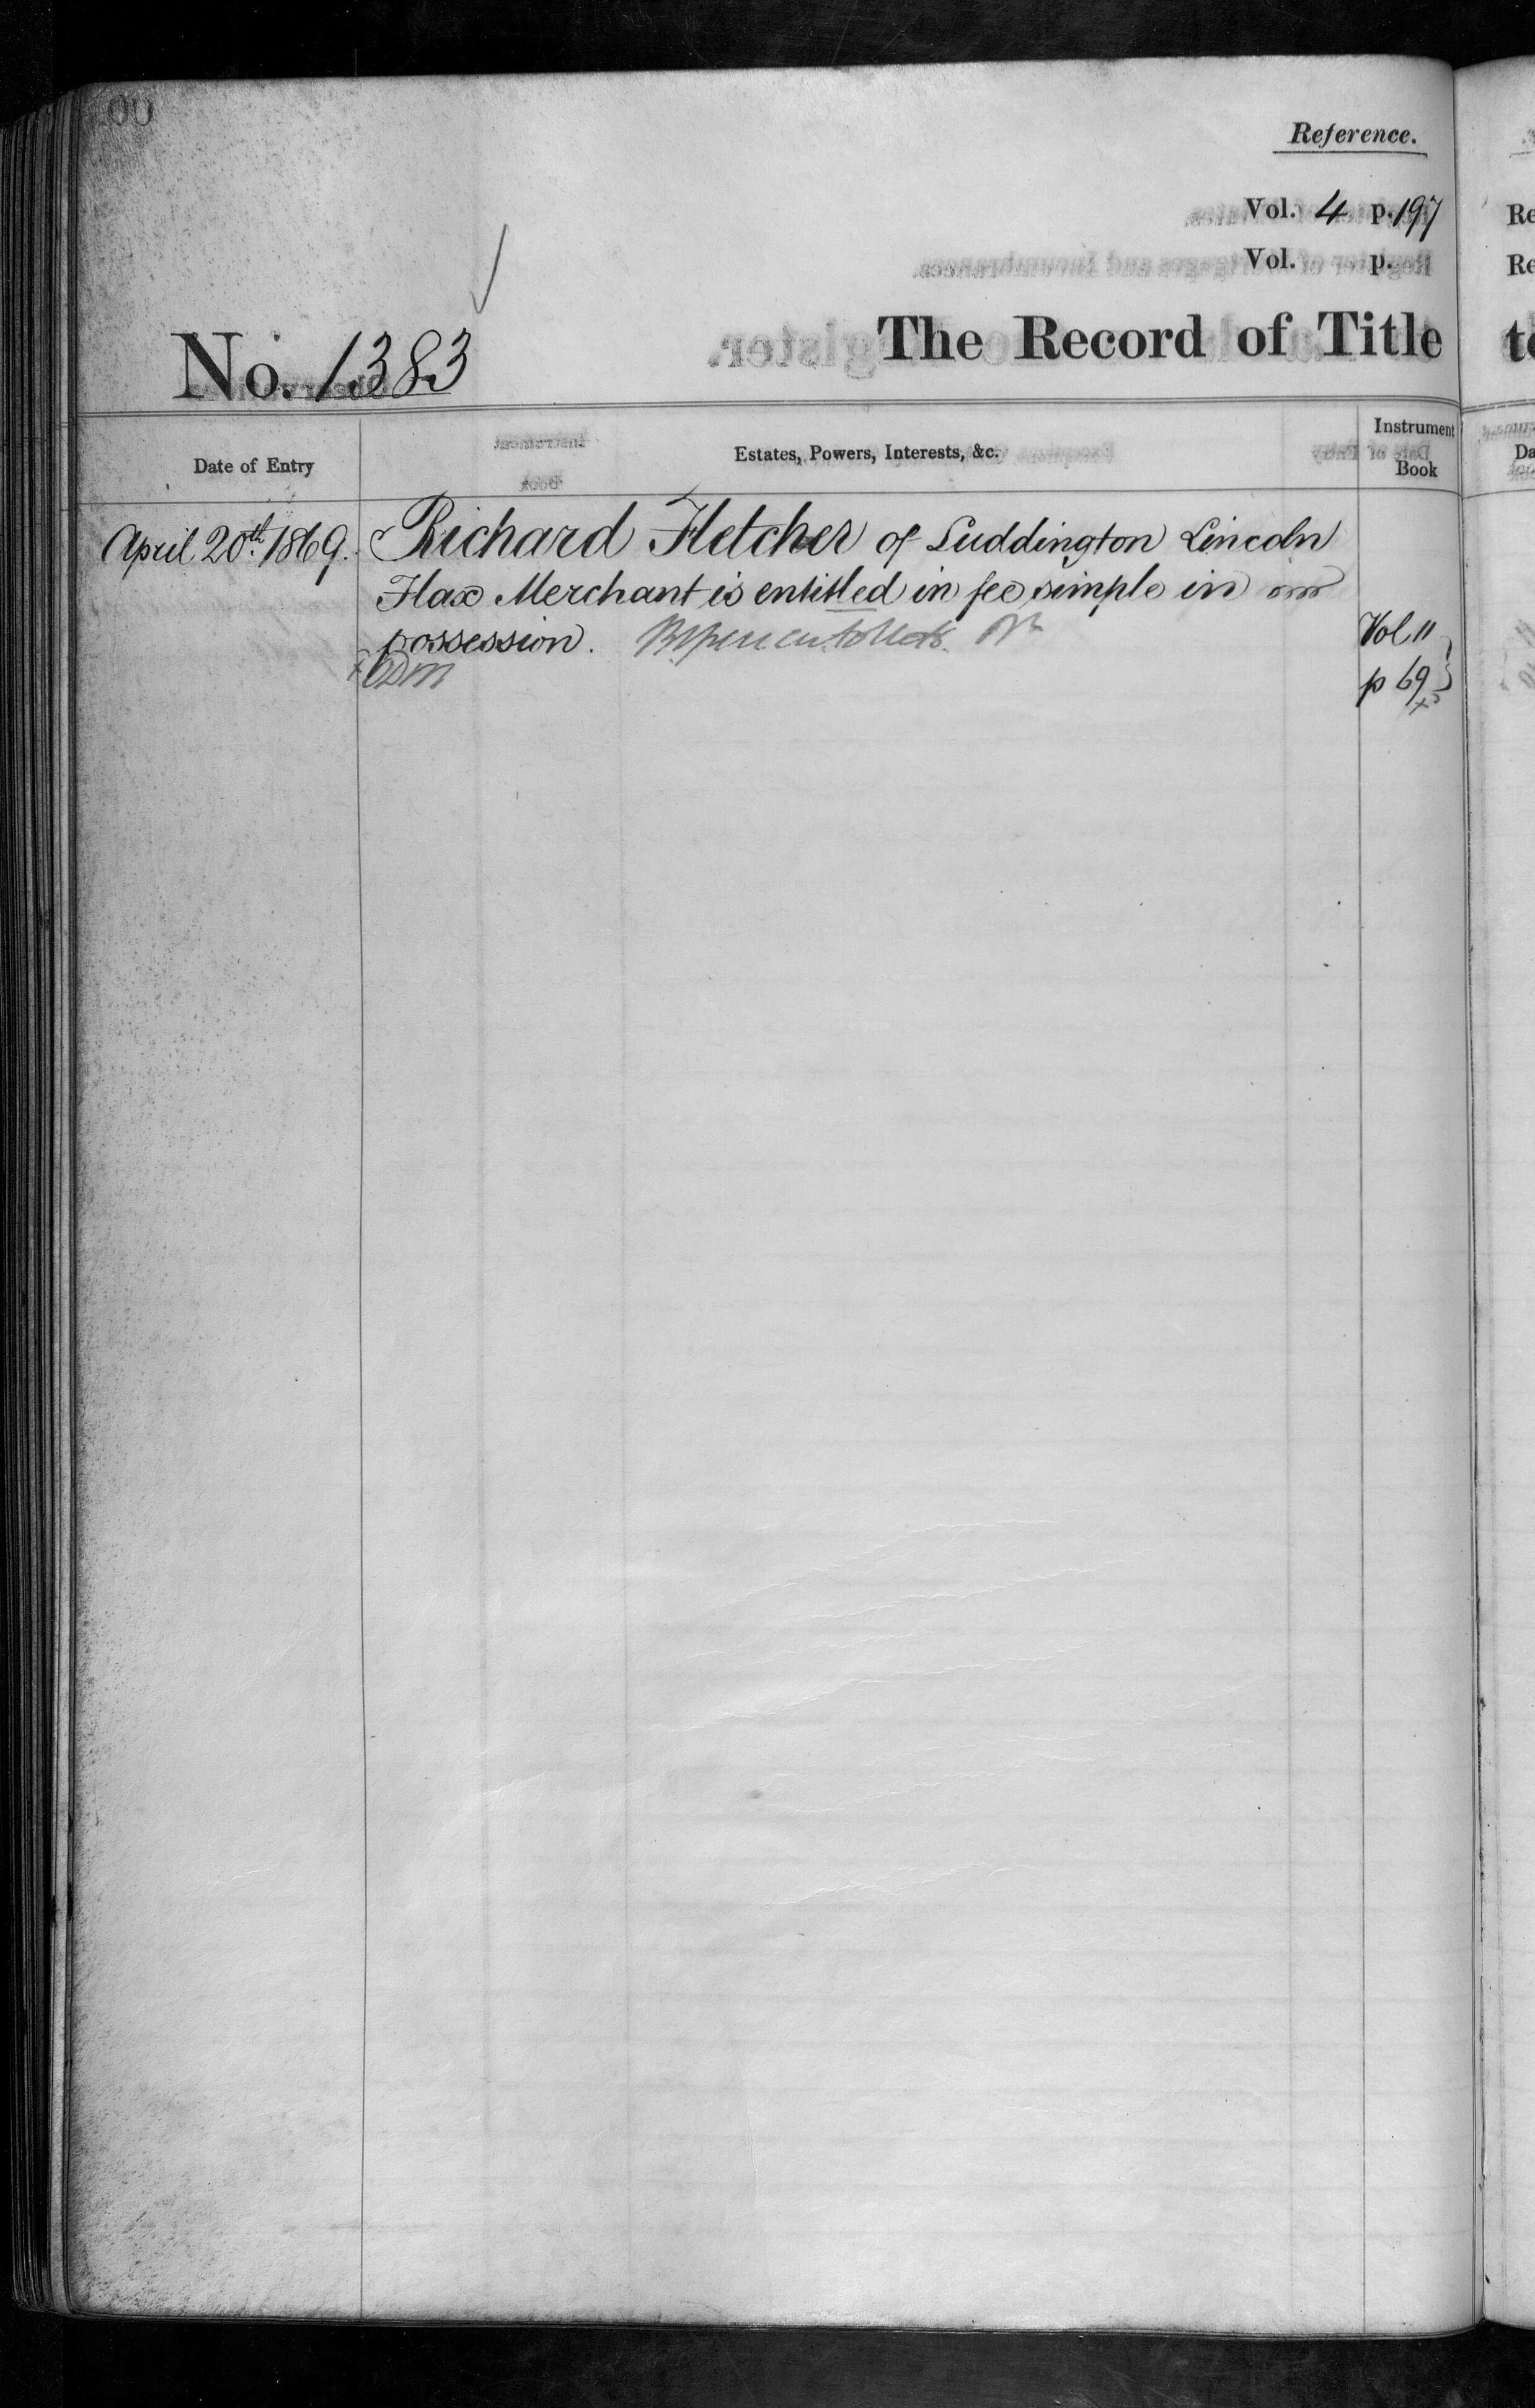 Reference.
Vol. 4 p. 197
Vol. p.
No. 1383
The Record of Title
Date of Entry
Estates, Powers, Interests, &c.
Instrument
Book
April 20th. 1869. Richard Fletcher of Luddington Lincoln
Flax Merchant is entitled in fee simple in
possession.
Vol 11
p 69
Re
Re
Da